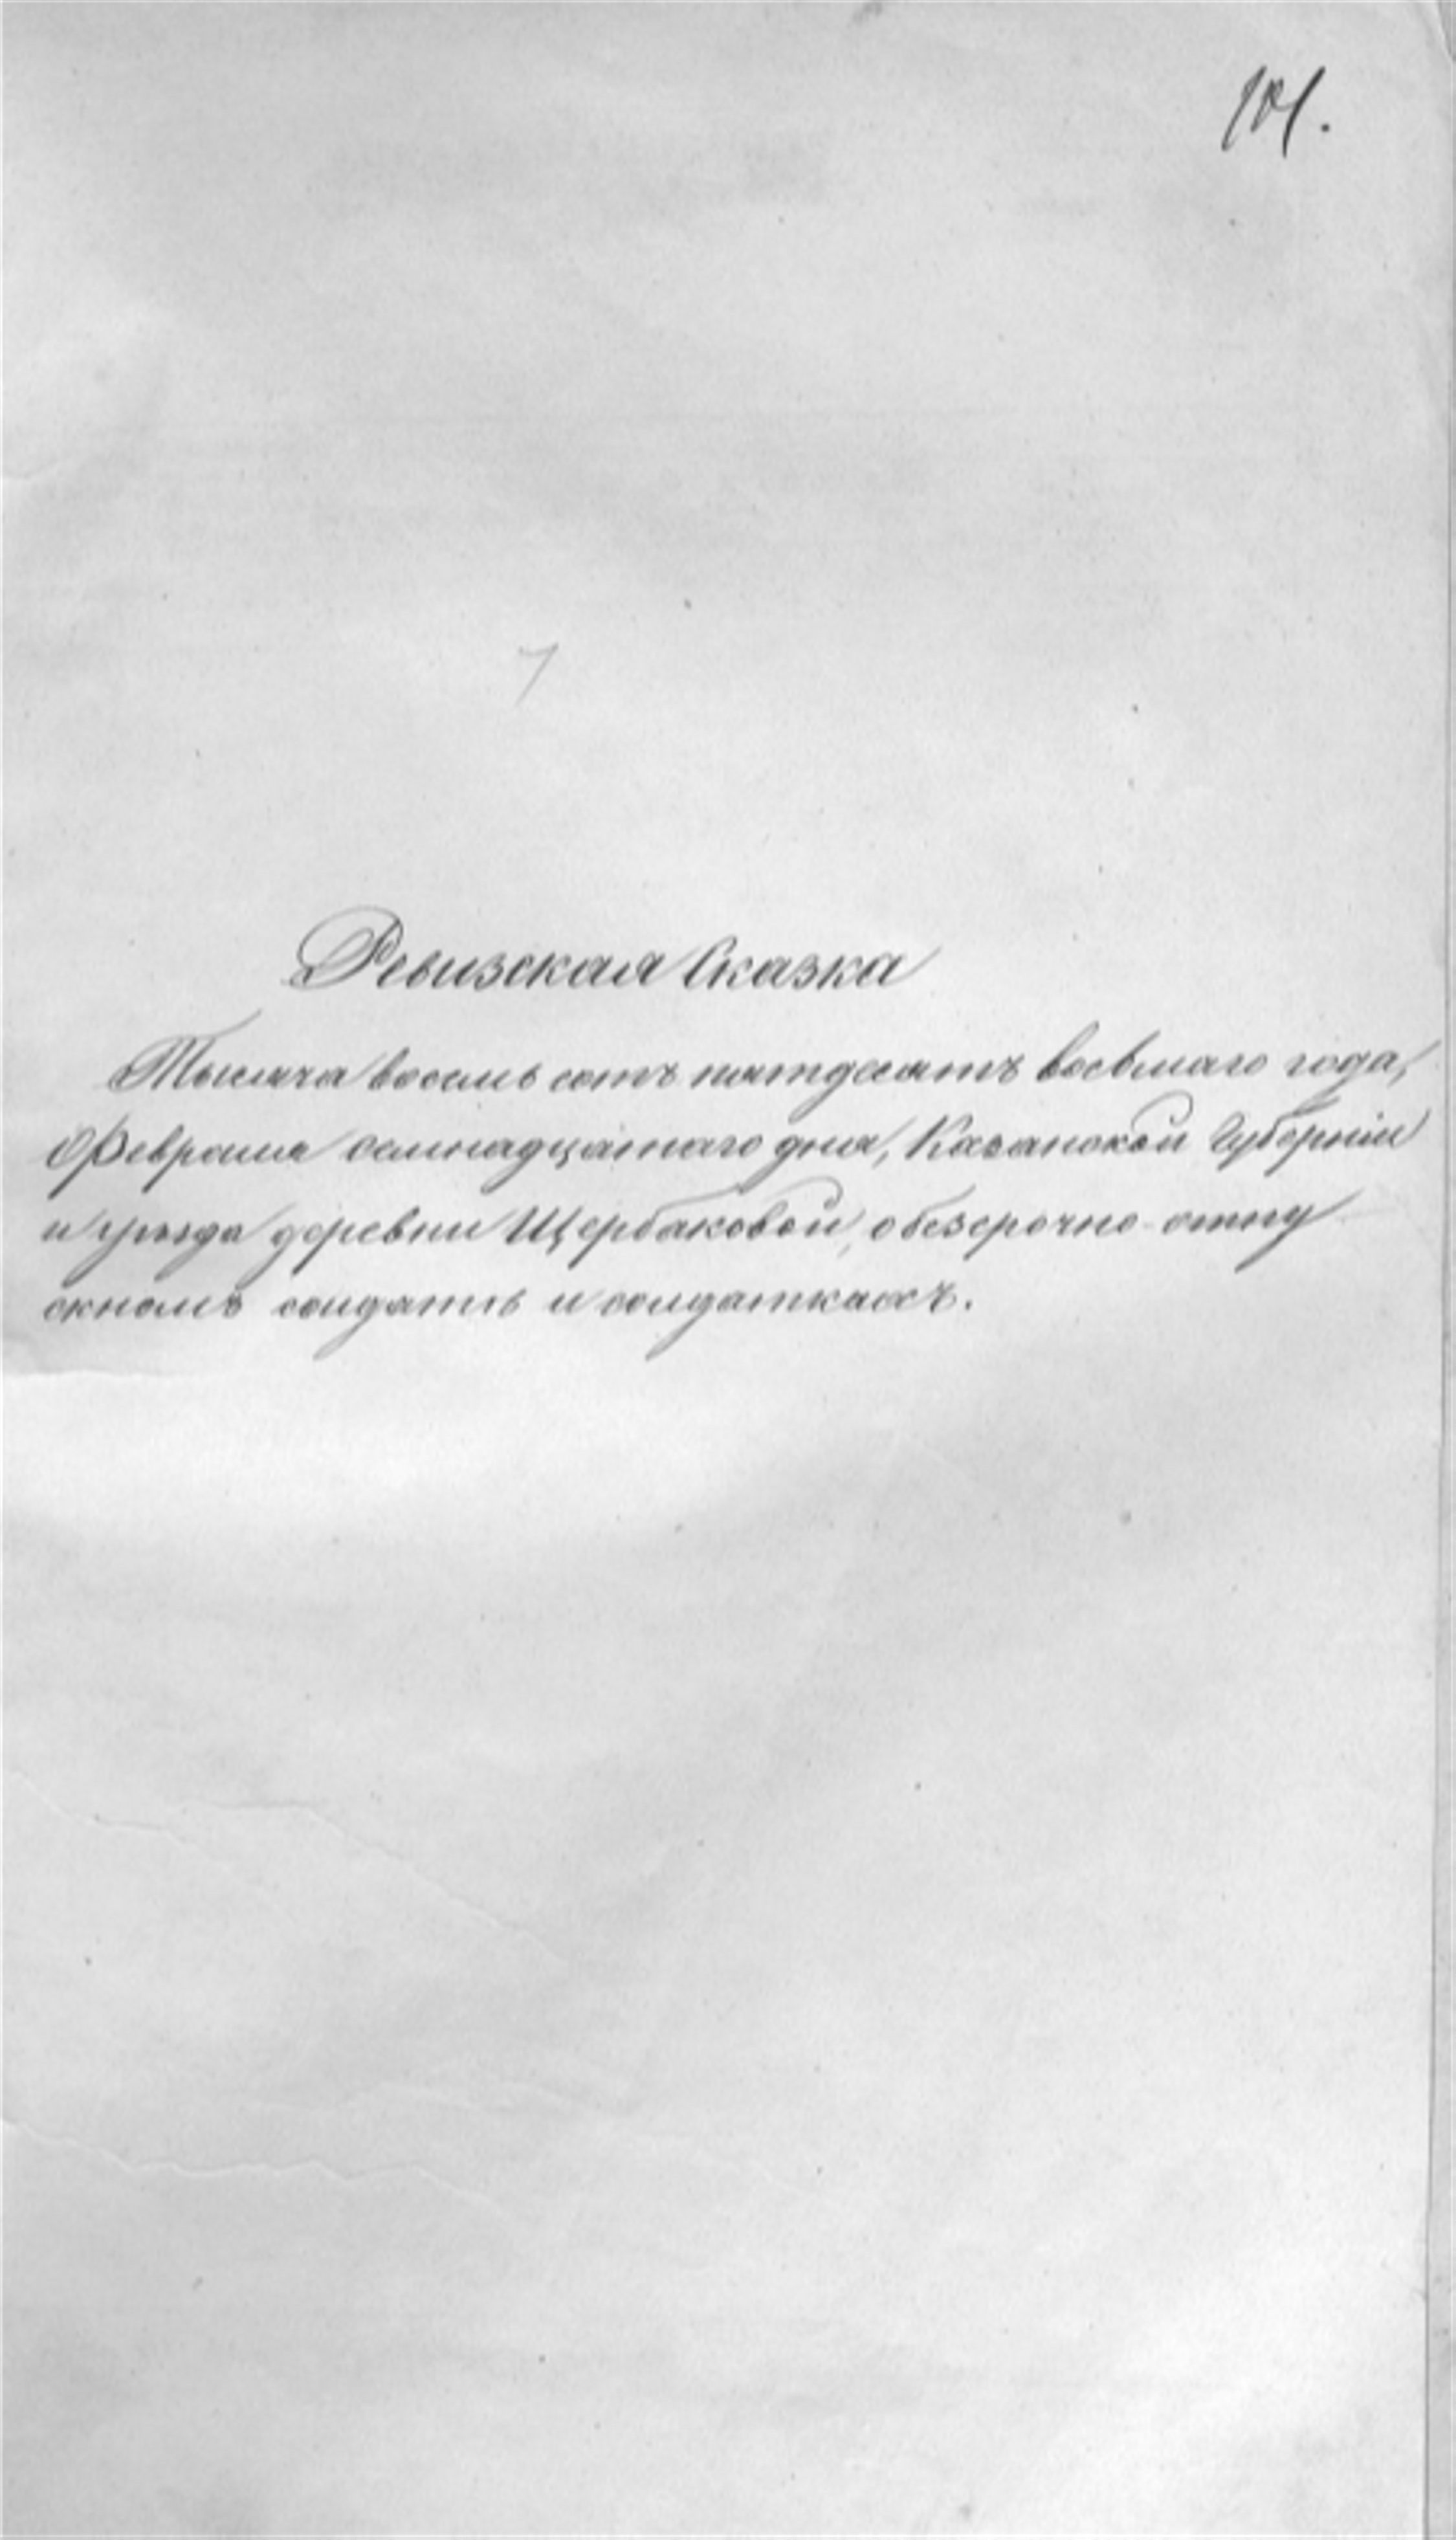 101.
7
Ревизская Сказка
Тысяча восемь сотъ пятдесятъ восьмаго года,
Февраля семнадцатаго дня, Казанской Губерніи
и уѣзда деревни Щербаковой, о безсрочно-отпу
скномъ солдатѣ и солдаткахъ.